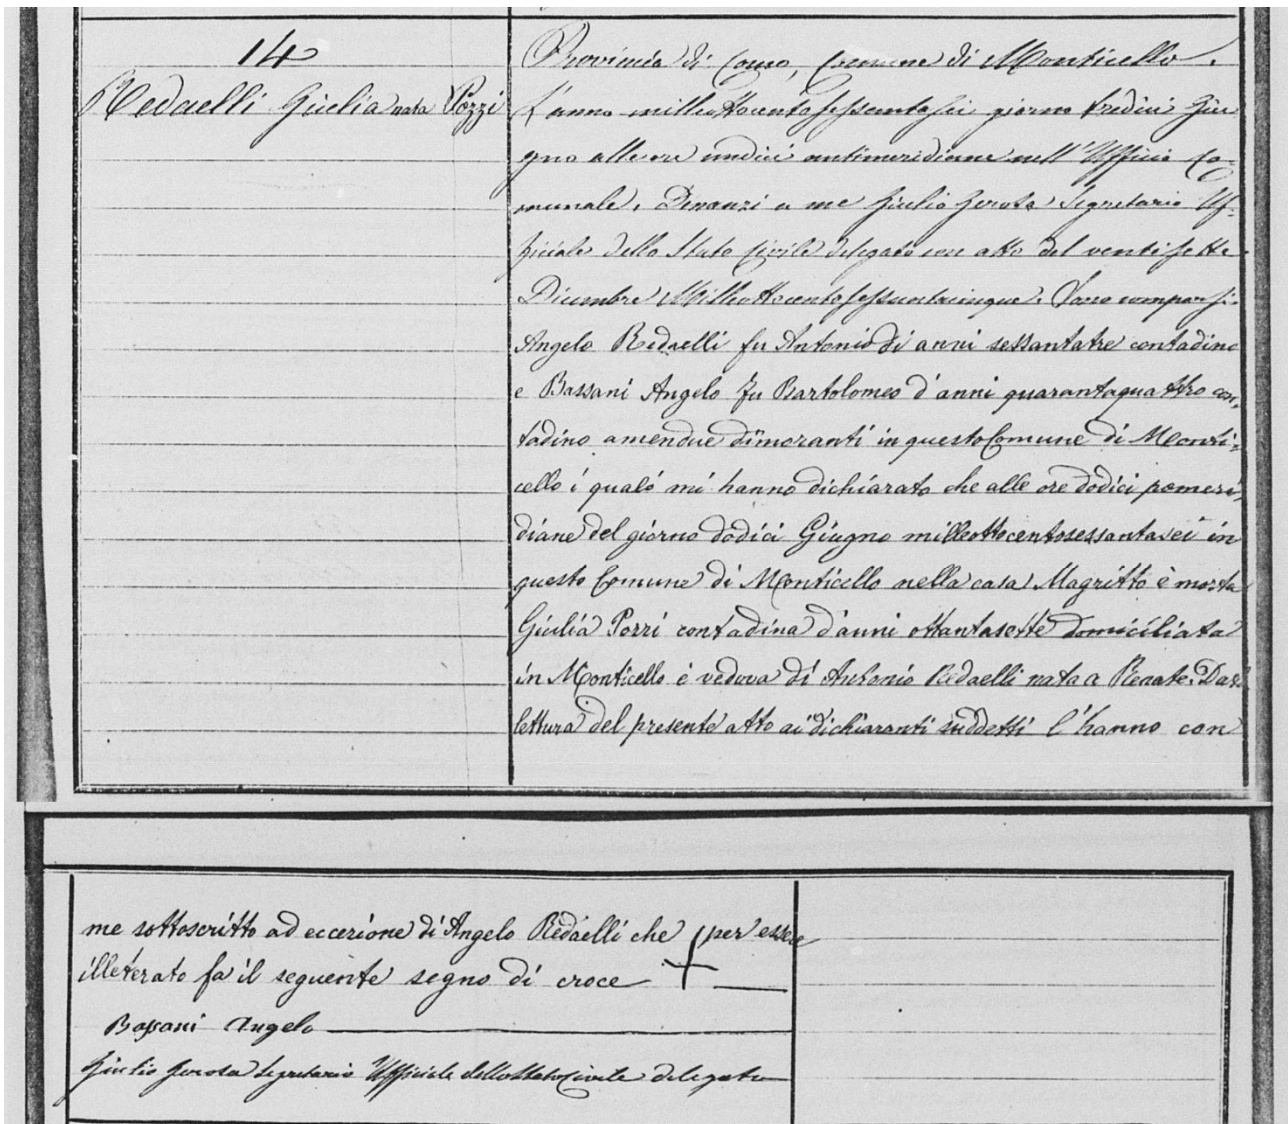 14
Redaelli Giulia nata Pozzi
Provincia di Como, Comune di Monticello.
L'anno milleottocentosessantasei giorno tredici Giu
gno alle ore undici antimeridiane nell'Ufficio Co-
munale. Dinanzi a me Giulio Gerosa Segretario Uf-
ficiale dello Stato Civile delegato con atto del ventisette
Dicembre Milleottocentosessantacinque. Sono comparsi
Angelo Redaelli fu Antonio di anni sessantatre contadino
e Bassani Angelo fu Bartolomeo d'anni quarantaquattro con,
tadino amendue dimoranti in questo Comune di Monti=
cello i quali mi hanno dichiarato che alle ore dodici pomeri,
diane del giorno dodici Giugno milleottocentosessantasei in
questo Comune di Monticello nella casa Magritto è morta
Giulia Pozzi contadina d'anni ottantasette domiciliata
in Monticello è vedova di Antonio Redaelli nata a Renate. Da
lettura del presente atto ai dichiaranti suddetti l'hanno con
me sottoscritto ad eccezione di Angelo Redaelli che per essere
illeterato fa il seguente segno di croce +
Bassani Angelo
Giulio Gerosa Segretario Ufficiale dello Stato Civile delegato